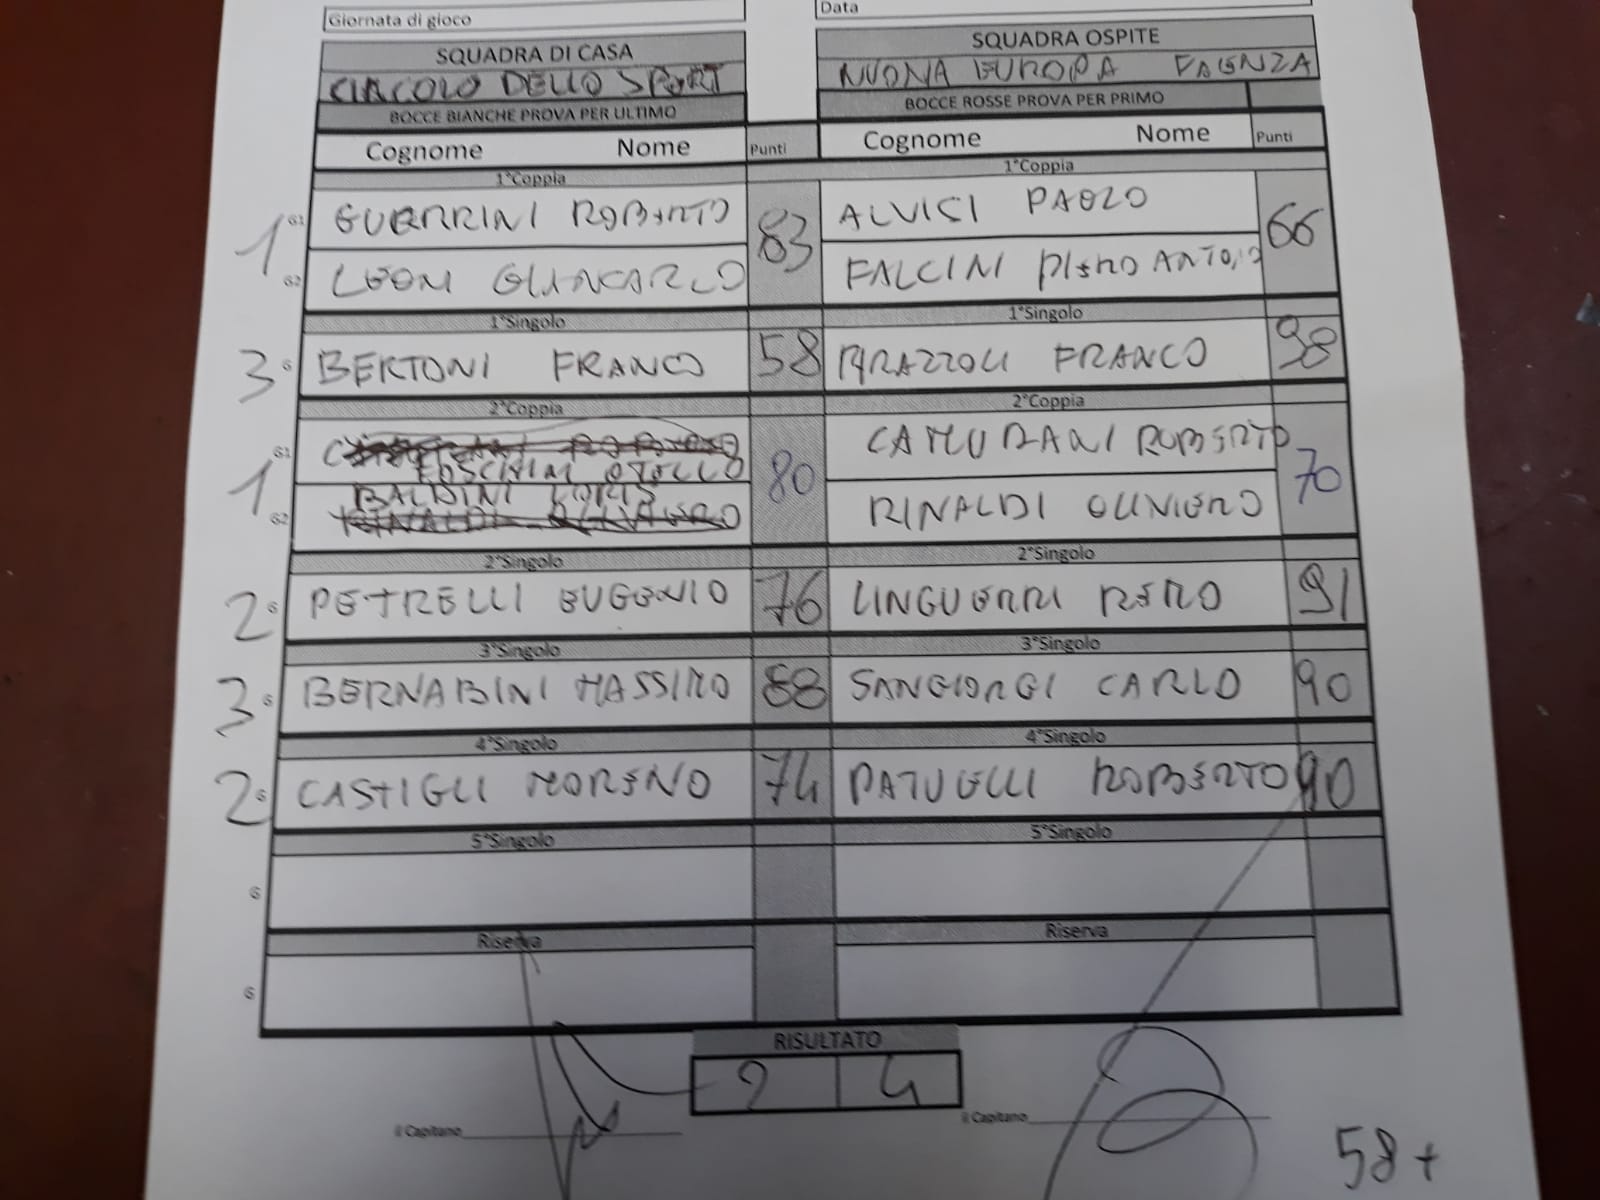 Giornata di gioco
Data
SQUADRA DI CASA
SQUADRA OSPITE
CIRCOLO DELLO SPORT
NUOVA EUROPA FAENZA
BOCCE BIANCHE PROVA PER ULTIMO
BOCCE ROSSE PROVA PER PRIMO
Cognome Nome Punti Cognome Nome Punti
1°Coppia 1°Coppia
1 G1 GUERRINI ROBERTO 83 ALVISI PAOLO 66
G2 LEONI GIANCARLO FALCINI PIERO ANTONIO
1°Singolo 1°Singolo
3 G BERTONI FRANCO 58 FRANCO 98
2°Coppia 2°Coppia
1 G1 FOSCHINI OTELLO 80 CAMURANI ROBERTO 70
G2 BALDINI LORIS RINALDI OLIVIERO
2°Singolo 2°Singolo
2 G PETRELLI EUGENIO 76 LINGUERRI PIERO 91
3°Singolo 3°Singolo
3 G BERNABINI MASSIMO 88 SANGIORGI CARLO 90
4°Singolo 4°Singolo
2 G CASTIGLI MORENO 74 PATUELLI ROBERTO 90
5°Singolo 5°Singolo
G
Riserva Riserva
G
RISULTATO
2 4
il Capitano
il Capitano
58 +